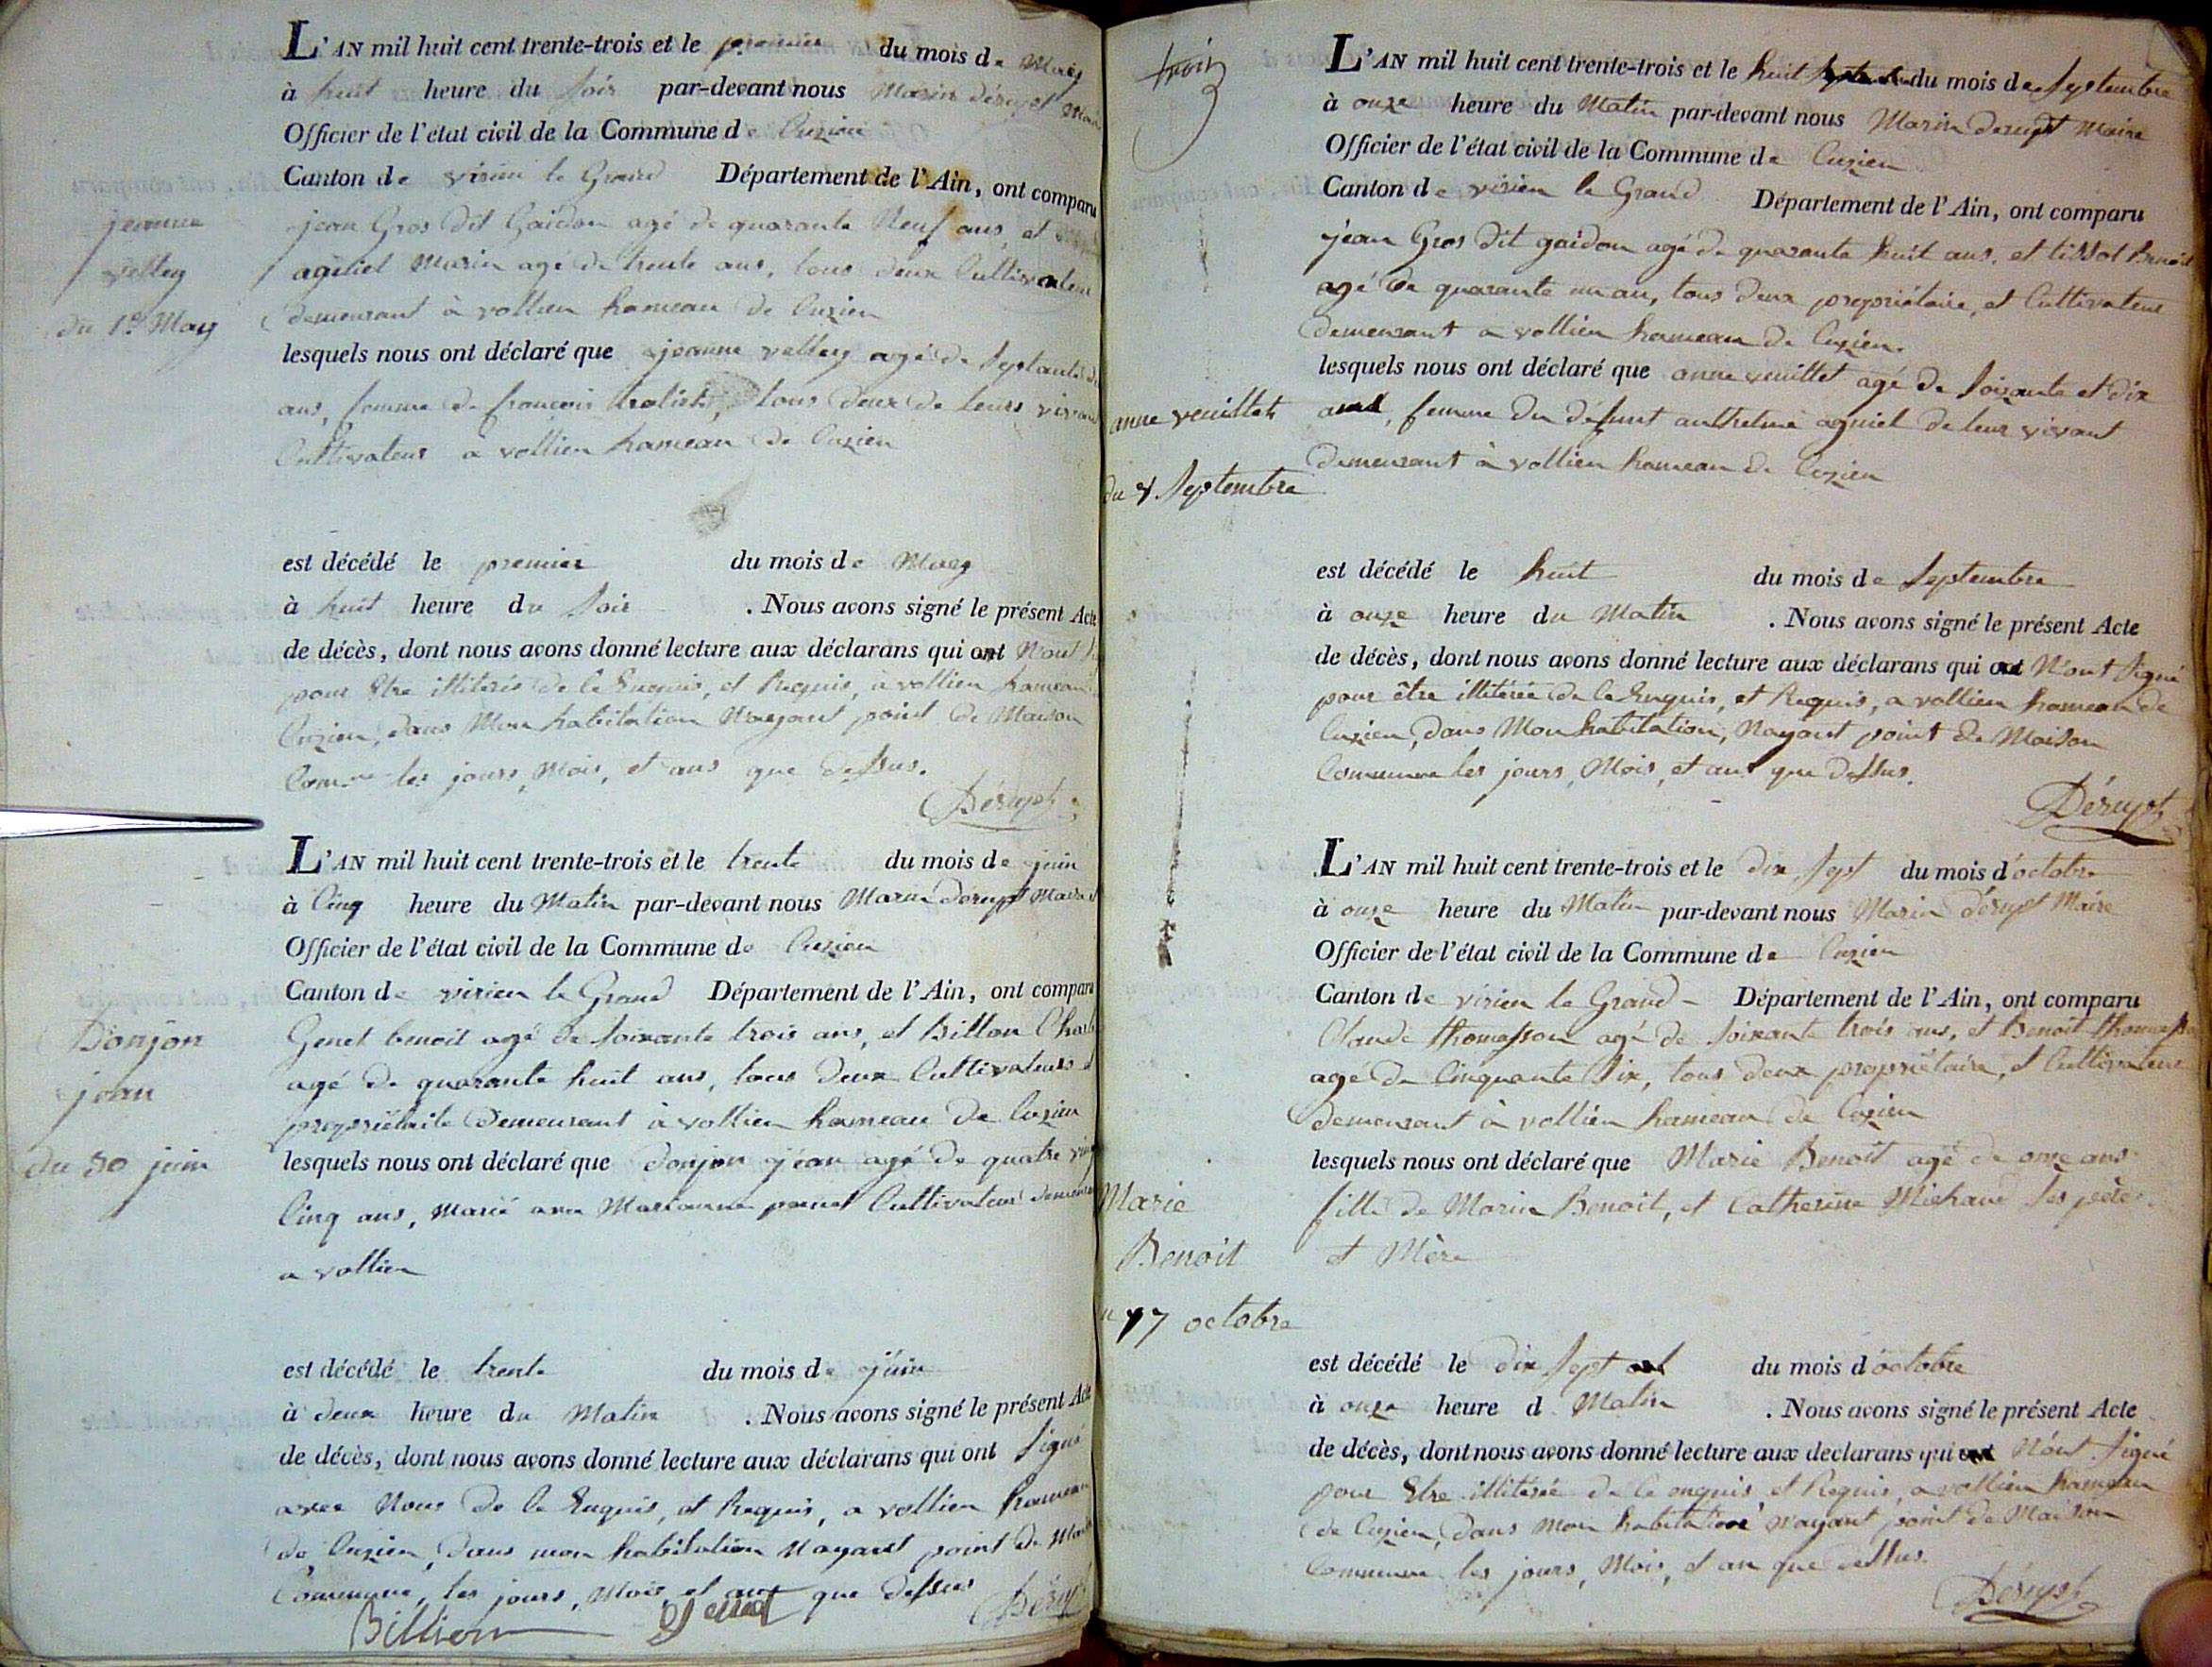 L'AN mil huit cent trente-trois et le premier du mois de May
à huit heure du soir par-devant nous Marin Déruyt Maire
Officier de l'état civil de la Commune de Cuzieu
Canton de virieu le Grand Département de l'Ain, ont comparu
jean Gros dit Gaidon agé de quarante Neuf ans, et
agniel Marin agé de trente ans, tous deux Cultivateur
demeurant à vollien hameau de Cuzieu
lesquels nous ont déclaré que jeanne vettey agé de septante
ans, femme de françois, tous deux de leurs vivant
Cultivateur a vollien hameau de Cuzieu
jeanne
vettey
du 1er May
est décédé le premier du mois de May
à huit heure du soir . Nous avons signé le présent Acte
de décès, dont nous avons donné lecture aux déclarans qui ont N'ont
pour Etre illiterés de le Enquis, et Requis, à vollien hameau
Cuzieu, dans Mon habitation N'ayant point de Maison
Comune les jours, Mois, et ans que dessus.
Déruyt
L'AN mil huit cent trente-trois et le trente du mois de juin
à Cinq heure du Matin par-devant nous Marin Déruyt Maire
Officier de l'état civil de la Commune de Cuzieu
Canton de virieu le Grand Département de l'Ain, ont comparu
Genet benoit agé de soixante trois ans, et Billon Charle
agé de quarante huit ans, tous deux Cultivateurs
propriétaite Demeurant à vollien hameau de Cuzieu
lesquels nous ont déclaré que donjon jean agé de quatre vingt
Cinq ans, Marié avec Marianne Cultivateur demeurant
a vollien
Donjon
jean
du 30 juin
est décédé le trente du mois de juin
à deux heure du Matin . Nous avons signé le présent Acte
de décès, dont nous avons donné lecture aux déclarans qui ont signé
avec Nous de le Enquis, et Requis, a vollien hameau
de Cuzieu, dans mon habitation Nayant point de
Commune, les jours, Mois, et an que dessus
Billion Genet Déruyt
trois
L'AN mil huit cent trente-trois et le huit du mois de Septembre
à onze heure du Matin par-devant nous Marin Déruyt Maire
Officier de l'état civil de la Commune de Cuzieu
Canton de virieu le Grand Département de l'Ain, ont comparu
jean Gros dit gaidon agé de quarante huit ans. et tissot Benoit
agé de quarante un an, tous deux propriétaire, et Cultivateur
demeurant a vollien hameau de Cuzieu.
lesquels nous ont déclaré que anne veuillet agé de soixante et dix
ans, femme du défunt anthelme agniel de leur vivant
demeurant à vollien hameau de Cuzieu
anne veuillet
du 8 Septembre
est décédé le huit du mois de Septembre
à onze heure du Matin . Nous avons signé le présent Acte
de décès, dont nous avons donné lecture aux déclarans qui ont N'ont signé
pour être illitérée de le Enquis, et Requis, a vollien hameau de
Cuzieu, dans Mon habitation, Nayant point de Maison
Commune les jours, Mois, et an que dessus.
Déruyt
L'AN mil huit cent trente-trois et le dix sept du mois d'octobre
à onze heure du Matin par-devant nous Marin Déruyt Maire
Officier de l'état civil de la Commune de Cuzieu
Canton de virieu le Grand - Département de l'Ain, ont comparu
Claude thomasson agé de soixante trois ans, et Benoit thomasson
agé de Cinquante six, tous deux propriétaire, et Cultivateur
demeurant à vollien hameau de Cuzieu
lesquels nous ont déclaré que Marie Benoit agé de onze ans
fille de Marin Benoit, et Catherine Michaud ses père
et Mère
Marie
Benoit
17 octobre
est décédé le dix sept du mois d'octobre
à onze heure d Matin . Nous avons signé le présent Acte
de décès, dont nous avons donné lecture aux declarans qui ont N'ont signé
pour Etre illitérée de le enquis et Requis, a vollien hameau
de Cuzieu, dans mon habitation nayant point de Maison
Commune les jours, Mois, et an que dessus.
Déruyt